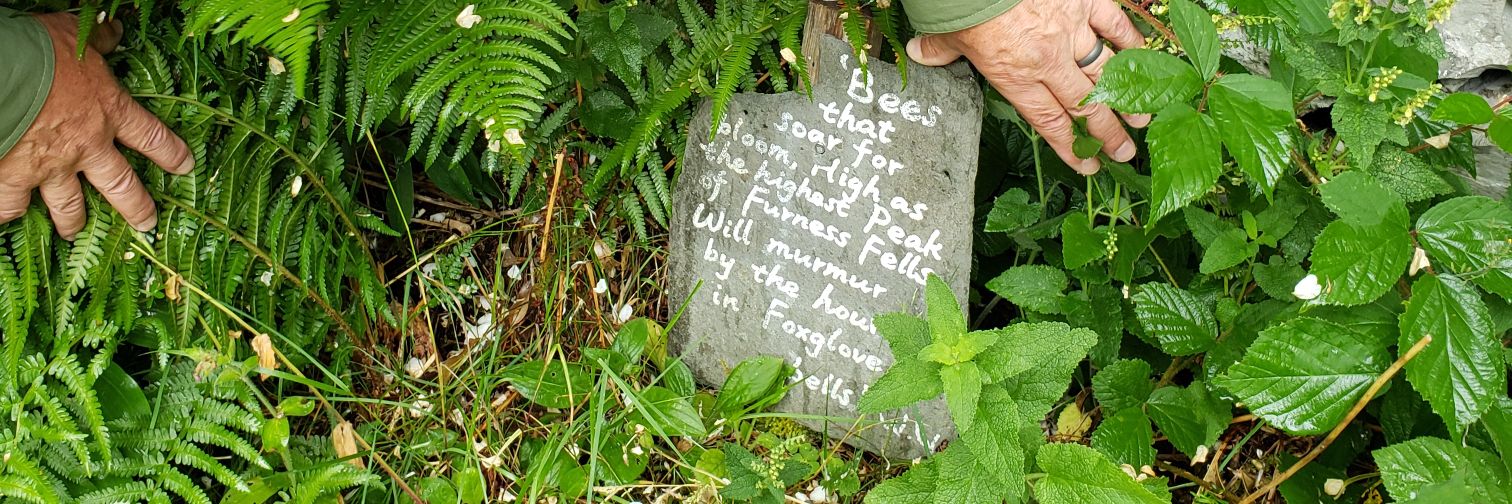 'Bees
that
soar for
bloom, High as
the highest Peak
of Furness Fells
Will murmur
by the hou
in Foxglove
bells'